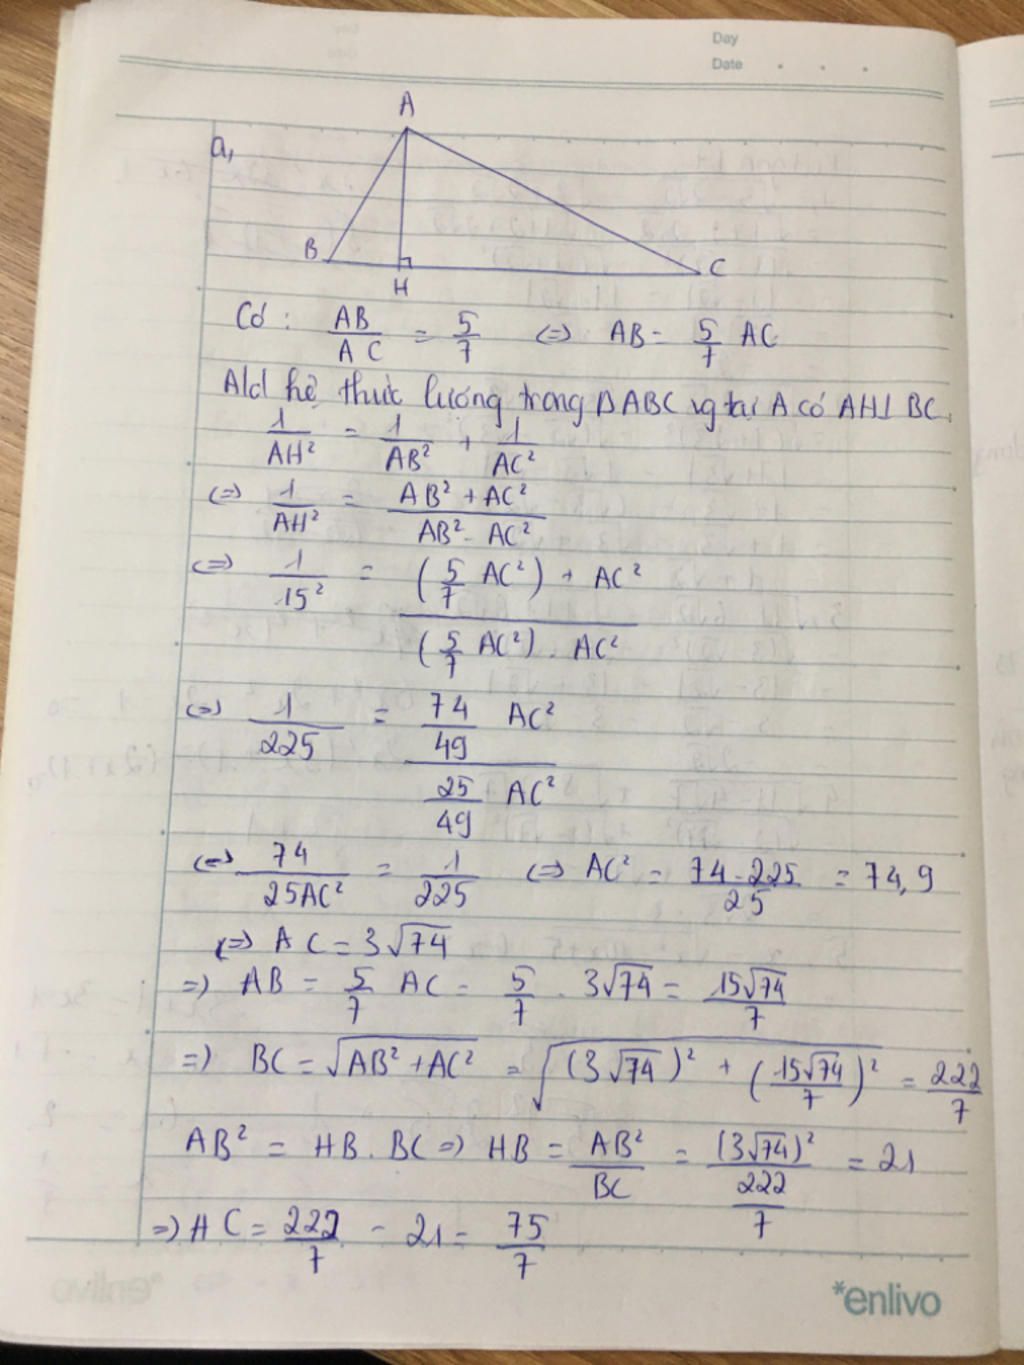 Day
Date . . .
a,
A
B
H
C
Có : AB/AC = 5/7 <=> AB = 5/7 AC
Ald hệ thức lượng trong ΔABC vg tại A có AH⊥BC
1/AH² = 1/AB² + 1/AC²
<=> 1/AH² = (AB² + AC²)/(AB² . AC²)
<=> 1/15² = ((5/7 AC²) + AC²)/((5/7 AC²) . AC²)
<=> 1/225 = (74/49 AC²)/(25/49 AC²)
<=> 74/25AC² = 1/225 <=> AC² = (74.225)/25 = 74,9
<=> AC = 3√74
=> AB = 5/7 AC = 5/7 . 3√74 = 15√74/7
=> BC = √(AB² + AC²) = √((3√74)² + (15√74/7)²) = 222/7
AB² = HB . BC => HB = AB²/BC = (3√74)²/(222/7) = 21
=> HC = 222/7 - 21 = 75/7
*enlivo